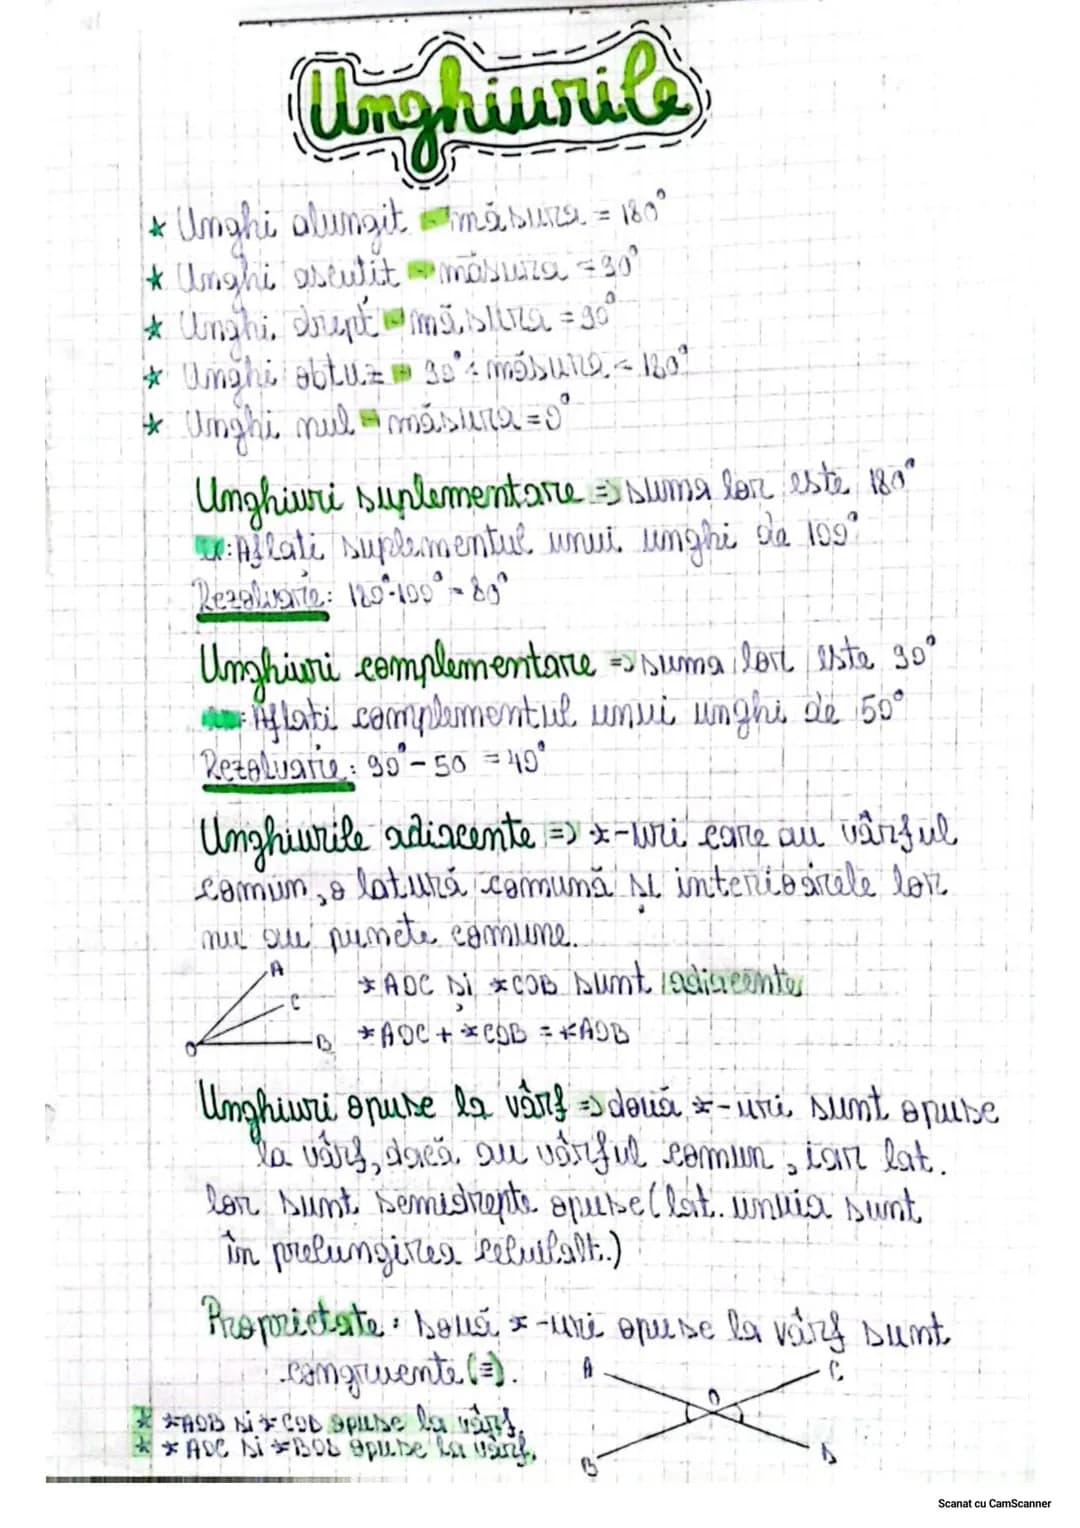 Unghiurile
* Unghi alungit → măsura = 180°
* Unghi ascutit → măsura = 90°
* Unghi drept → măsura = 90°
* Unghi obtuz → 90° < măsura < 180°
* Unghi nul → măsura = 0°
Unghiuri suplementare => suma lor este 180°
Ex: Aflati suplementul unui unghi de 100°
Rezolvare: 180°-100° = 80°
Unghiuri complementare => suma lor este 90°
Ex: Aflati complementul unui unghi de 50°
Rezolvarie: 90° - 50 = 40°
Unghiurile adiacente => ∢-uri care au vârful
comun, o latură comună și interioarele lor
nu au puncte comune.
A
C
O
B
∢AOC și ∢COB sunt adiacente
∢AOC + ∢COB = ∢AOB
Unghiuri opuse la vârf => două ∢-uri sunt opuse
la vârf, dacă au vârful comun, iar lat.
lor sunt semidrepte opuse (lat. unuia sunt
în prelungirea celuilalt.)
Proprietate: Două ∢-uri opuse la vârf sunt
congruente (≡).
A
C
O
B
D
* ∢AOB și ∢COD opuse la vârf.
* ∢AOC și ∢BOD opuse la vârf.
Scanat cu CamScanner